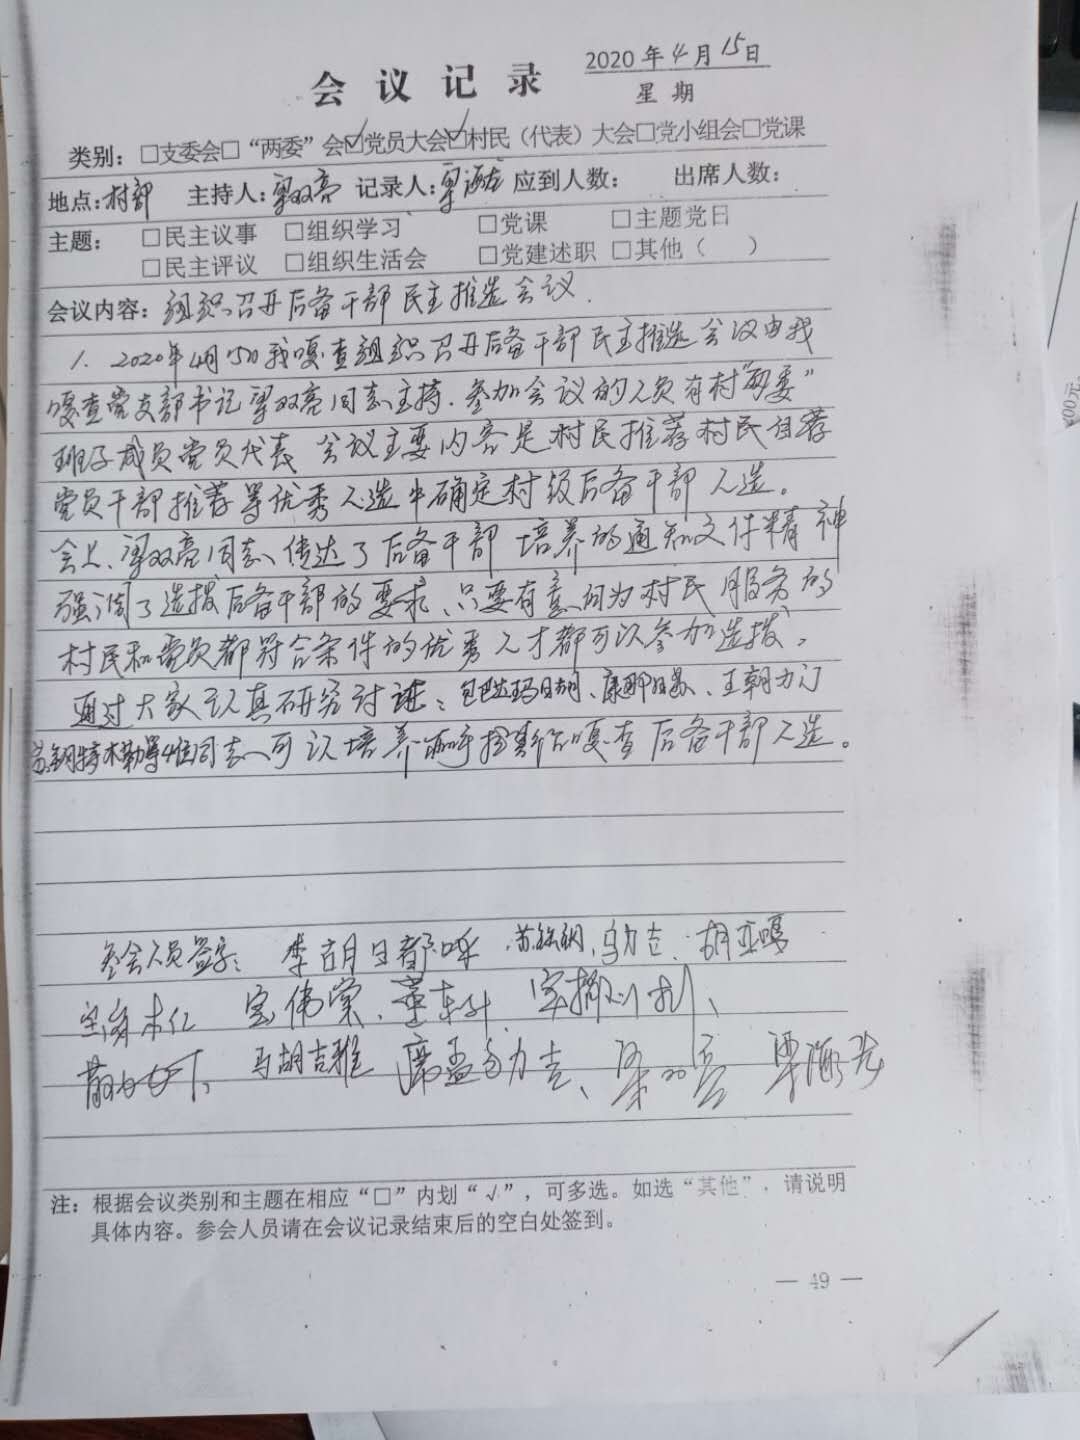 会议记录
2020年4月15日
星期
类别：□支委会□“两委”会☑党员大会☑村民（代表）大会□党小组会□党课
地点：村部 主持人：梁双亮 记录人：梁海龙 应到人数： 出席人数：
主题： □民主议事 □组织学习 □党课 □主题党日
□民主评议 □组织生活会 □党建述职 □其他（ ）
会议内容：组织召开后备干部民主推选会议.
1. 2020年4月15日我嘎查组织召开后备干部民主推选会议由我
嘎查党支部书记梁双亮同志主持.参加会议的人员有村“两委”
班子成员党员代表 会议主要内容是村民推荐村民自荐
党员干部推荐等优秀人选中确定村级后备干部人选。
会上、梁双亮同志传达了后备干部 培养的通知文件精神
强调了选拔后备干部的要求、只要有意向为村民服务的
村民和党员都符合条件的优秀人才都可以参加选拔。
通过大家认真研究讨论：包巴达玛日胡、康那日苏、王朝力门
苏钢特木勒等4位同志可以培养 嘎查后备干部人选。
参会人员签字： 李胡日都呼 苏铁钢，乌力吉．胡亚嘎
木仁 宝伟荣、董东升
马胡吉雅 席孟乌力吉、梁双亮 梁海龙
注：根据会议类别和主题在相应“□”内划“√”，可多选。如选“其他”，请说明
具体内容。参会人员请在会议记录结束后的空白处签到。
— 49 —